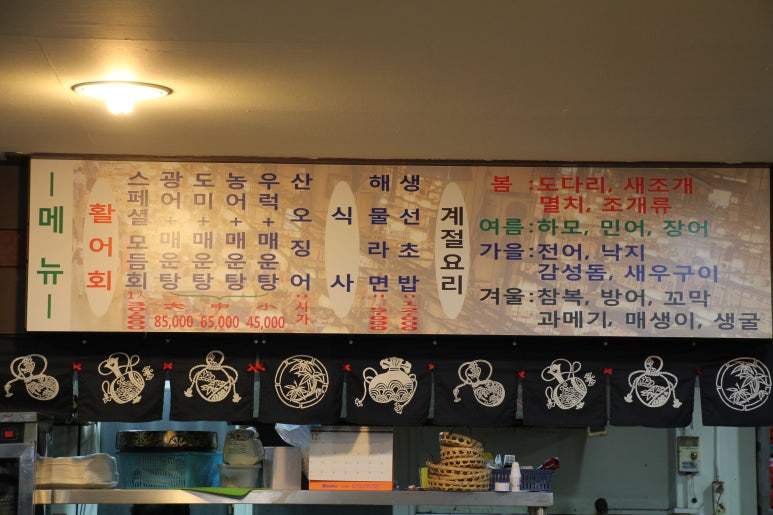 메뉴
활어회
스페셜모듬회
광어+매운탕
도미+매운탕
농어+매운탕
우럭+매운탕
산오징어
大 中 小 시가
85,000 65,000 45,000
식사
해물라면
생선초밥
계절요리
봄 : 도다리, 새조개
멸치, 조개류
여름 : 하모, 민어, 장어
가을 : 전어, 낙지
감성돔, 새우구이
겨울 : 참복, 방어, 꼬막
과메기, 매생이, 생굴